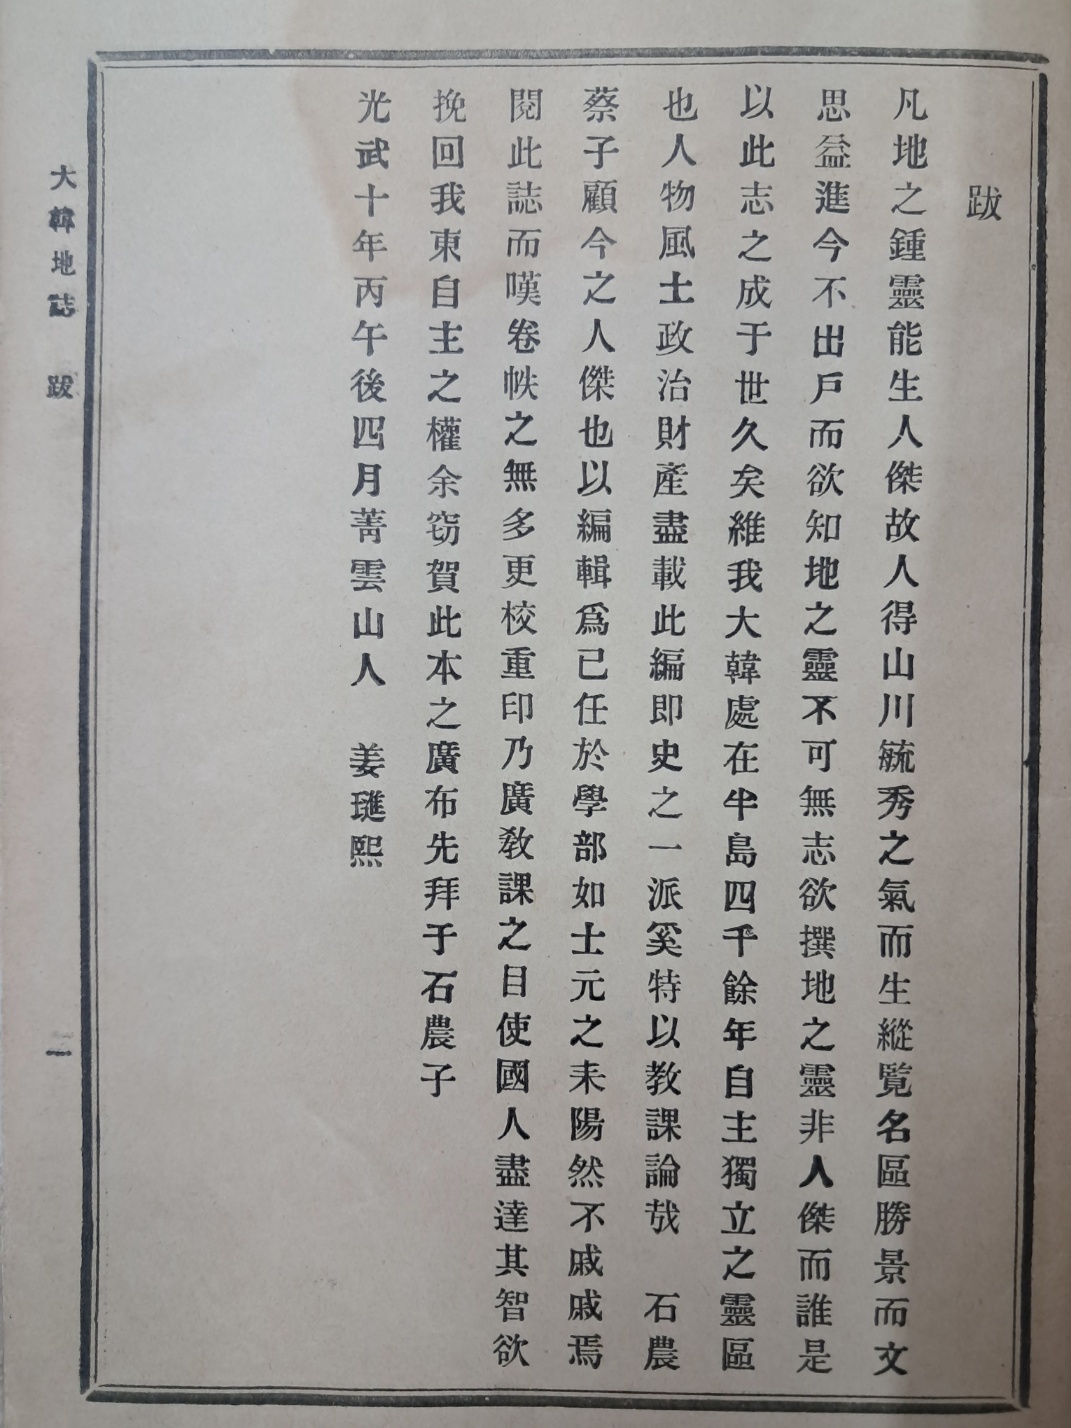 跋
凡地之鍾靈能生人傑故人得山川毓秀之氣而生縱覧名區勝景而文
思益進今不出戶而欲知地之靈不可無志欲撰地之靈非人傑而誰是
以此志之成于世久矣維我大韓處在半島四千餘年自主獨立之靈區
也人物風土政治財產盡載此編即史之一派奚特以教課論哉　石農
蔡子顧今之人傑也以編輯爲已任於學部如士元之耒陽然不戚戚焉
閱此誌而嘆卷帙之無多更校重印乃廣教課之目使國人盡達其智欲
挽回我東自主之權余窃賀此本之廣布先拜于石農子
光武十年丙午後四月菁雲山人　姜璡熙
大韓地誌　跋　一